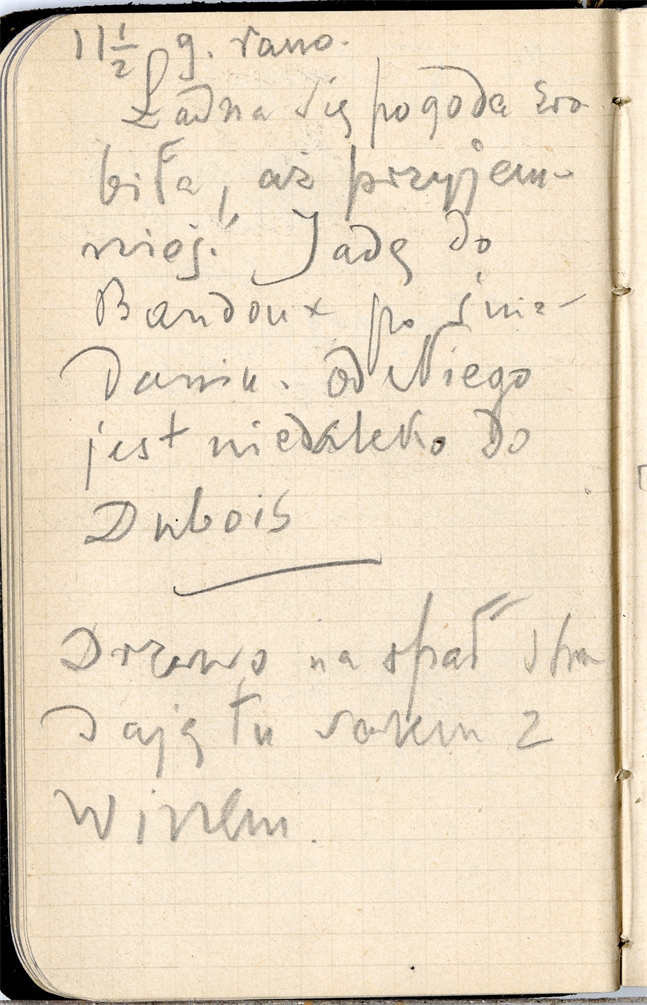 11 1/2 g. rano.
Ładna się pogoda zro
biła, aż przyjem-
niej. Jadę do
Bardoux po śnia-
daniu. Od Niego
jest niedaleko do
Dubois
Drzewo na opał
dają tu razem z